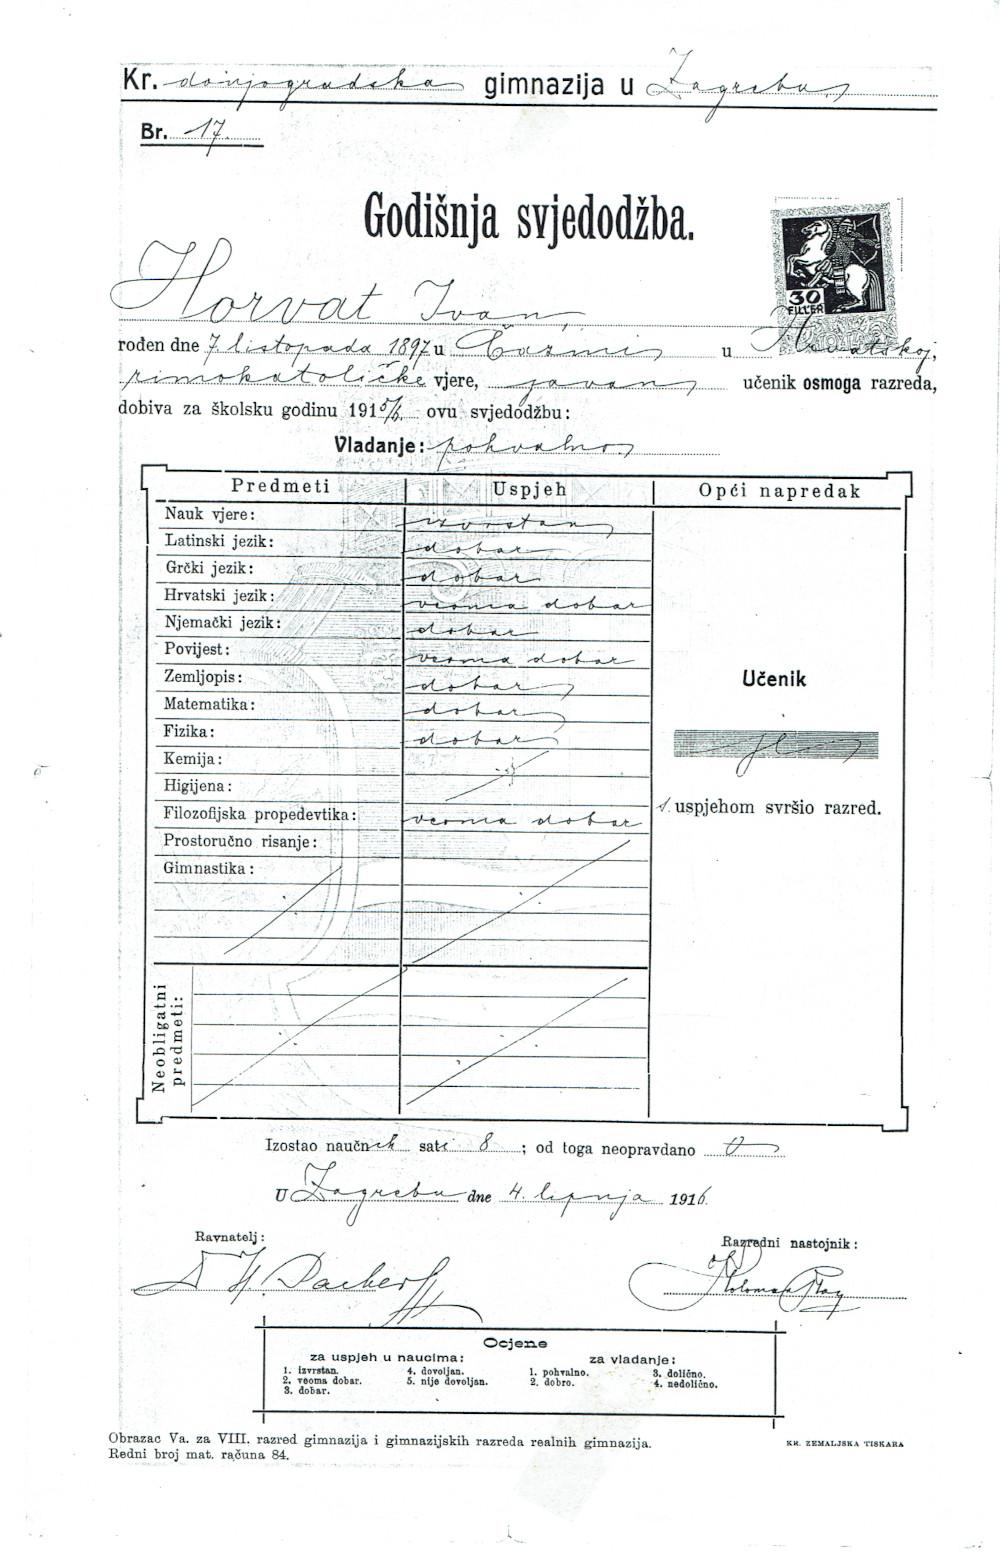 Kr. donjogradska gimnazija u Zagrebu
Br. 17.
Godišnja svjedodžba.
30
FILLER
Horvat Ivan,
rođen dne 7 listopada 1897 u Čazmi u Hrvatskoj,
rimokatoličke vjere, javan učenik osmoga razreda,
dobiva za školsku godinu 1915/6. ovu svjedodžbu:
Vladanje: pohvalno
Predmeti Uspjeh Opći napredak
Nauk vjere: izvrstan
Latinski jezik: dobar
Grčki jezik: dobar
Hrvatski jezik: veoma dobar
Njemački jezik: dobar
Povijest: veoma dobar
Zemljopis: dobar
Matematika: dobar
Fizika: dobar
Kemija:
Higijena:
Filozofijska propedevtika: veoma dobar
Prostoručno risanje:
Gimnastika:
Neobligatni
predmeti:
Učenik
je
s uspjehom svršio razred.
Izostao naučnih sati 8; od toga neopravdano 0
U Zagrebu dne 4. lipnja 1916.
Ravnatelj: Razredni nastojnik:
Koloman
Ocjene
za uspjeh u naucima: za vladanje:
1. izvrstan. 4. dovoljan. 1. pohvalno. 3. dolično.
2. veoma dobar. 5. nije dovoljan. 2. dobro. 4. nedolično.
3. dobar.
Obrazac Va. za VIII. razred gimnazija i gimnazijskih razreda realnih gimnazija.
Redni broj mat. računa 84.
KR. ZEMALJSKA TISKARA